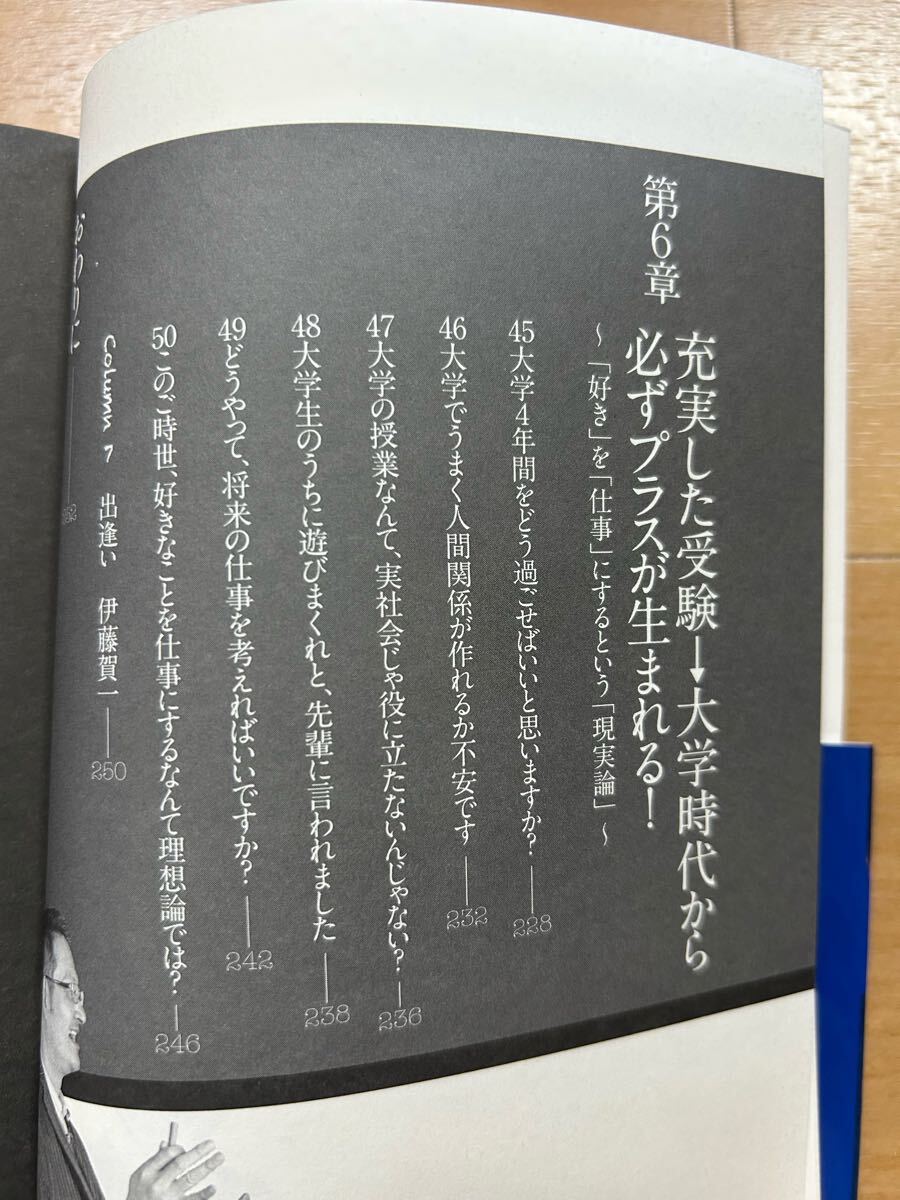 第6章
充実した受験→大学時代から
必ずプラスが生まれる！
～「好き」を「仕事」にするという「現実論」～
45大学4年間をどう過ごせばいいと思いますか？――228
46大学でうまく人間関係が作れるか不安です――232
47大学の授業なんて、実社会じゃ役に立たないんじゃない？―236
48大学生のうちに遊びまくれと、先輩に言われました―238
49どうやって、将来の仕事を考えればいいですか？―242
50このご時世、好きなことを仕事にするなんて理想論では？―246
Column 7 出逢い 伊藤賀一――250
おわりに――252